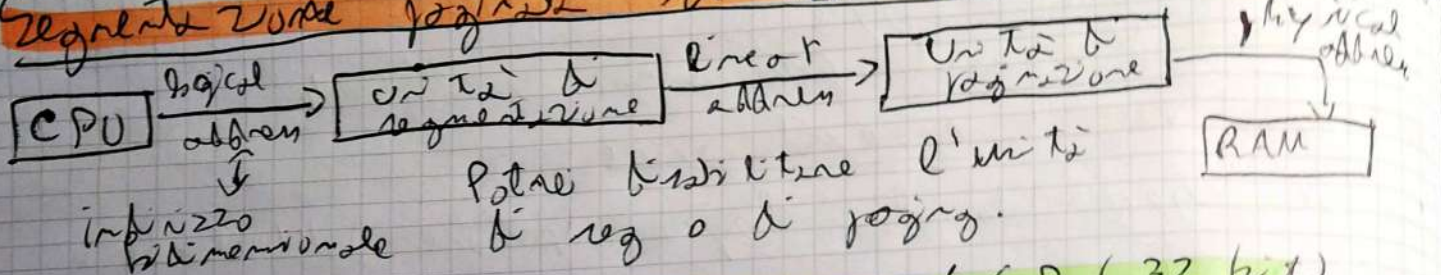 segmentazione paginata
CPU logical address unità di segmentazione linear address unità di paginazione physical address
RAM
indirizzo bidimensionale
Potrei disabilitare l'unità
di seg o di paging.
(32 bit)